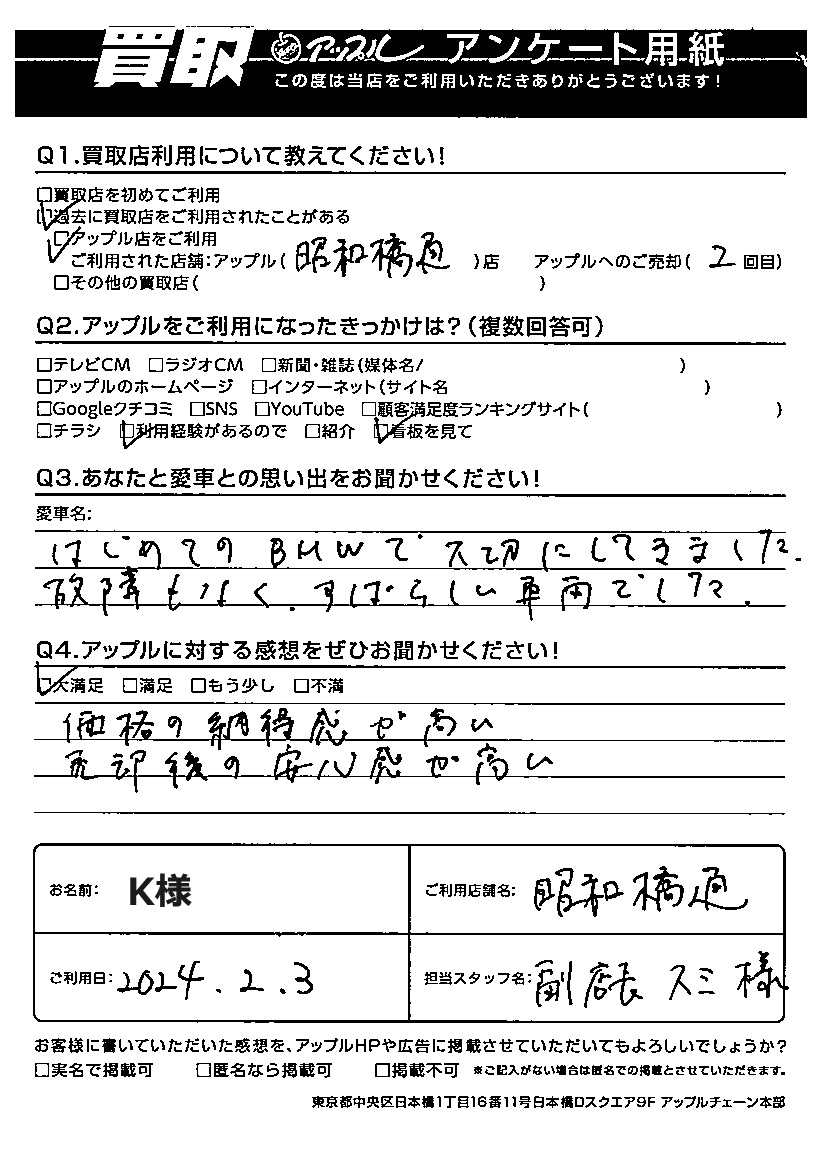 買取 アップル アンケート用紙
この度は当店をご利用いただきありがとうございます!
Q1.買取店利用について教えてください!
□買取店を初めてご利用
☑過去に買取店をご利用されたことがある
☑アップル店をご利用
ご利用された店舗:アップル( 昭和橋通 )店 アップルへのご売却( 2 回目)
□その他の買取店( )
Q2.アップルをご利用になったきっかけは?(複数回答可)
□テレビCM □ラジオCM □新聞・雑誌(媒体名/ )
□アップルのホームページ □インターネット(サイト名 )
□Googleクチコミ □SNS □YouTube □顧客満足度ランキングサイト( )
□チラシ ☑利用経験があるので □紹介 ☑看板を見て
Q3.あなたと愛車との思い出をお聞かせください!
愛車名:
はじめてのBMWで大切にしてきました.
故障もなく、すばらしい車両でした.
Q4.アップルに対する感想をぜひお聞かせください!
☑大満足 □満足 □もう少し □不満
価格の納得感が高い
売却後の安心感が高い
お名前: K様 ご利用店舗名: 昭和橋通
ご利用日: 2024.2.3 担当スタッフ名: 副店長 スミ様
お客様に書いていただいた感想を、アップルHPや広告に掲載させていただいてもよろしいでしょうか?
□実名で掲載可 □匿名なら掲載可 □掲載不可 ※ご記入がない場合は匿名での掲載とさせていただきます。
東京都中央区日本橋1丁目16番11号日本橋Dスクエア9F アップルチェーン本部